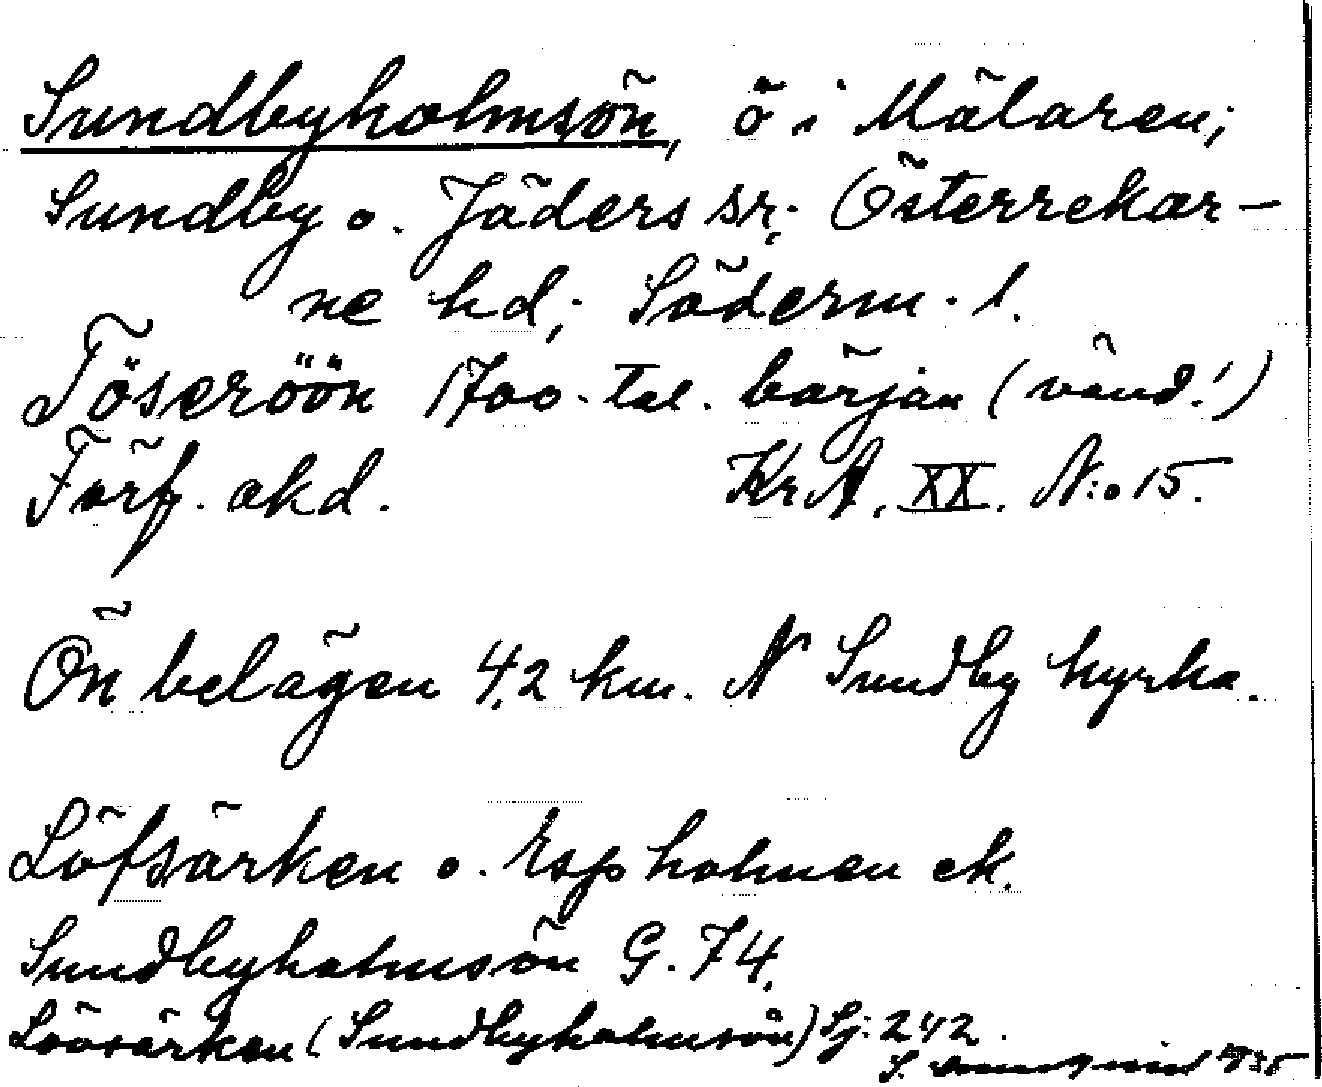 Sundbyholmsön, ö i Mälaren;
Sundby o. Jäders sr; Österrekar-
ne hd; Söderm. l.
Töseröön 1700-tal. början (vänd!)
Förf. okd. KrA. XX. N:o 15.
Ön belägen 4,2 km. N Sundby kyrka.
Löfsärken o. Espholmen ek.
Sundbyholmsön G. 74.
Lövsärken (Sundbyholmsön) Sj: 242.
S. 1935